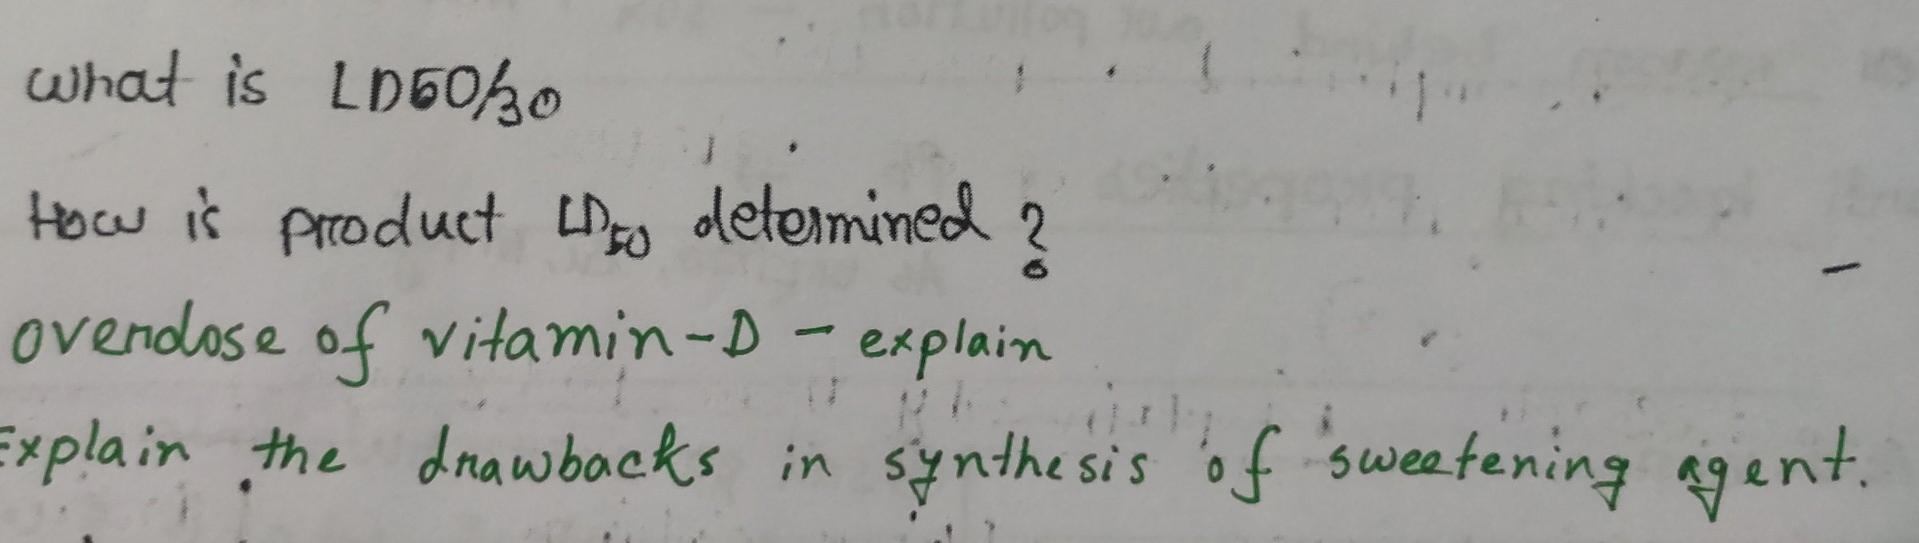 what is LD50/30
How is product LD50 determined?
overdose of vitamin-D - explain
Explain the drawbacks in synthesis of sweetening agent.